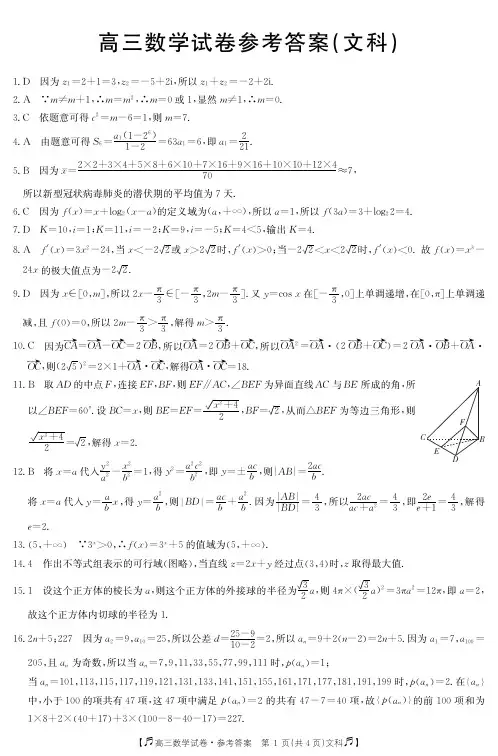 高三数学试卷参考答案(文科)
1. D 因为z₁=2+1=3,z₂=-5+2i,所以z₁+z₂=-2+2i.
2. A ∵m≠m+1,∴m=m²,∴m=0或1,显然m≠1,∴m=0.
3. C 依题意可得c²=m-6=1,则m=7.
4. A 由题意可得S₆=a₁(1-2⁶)/(1-2)=63a₁=6,即a₁=2/21.
5. B 因为x̄=(2×2+3×4+5×8+6×10+7×16+9×16+10×10+12×4)/70≈7,
所以新型冠状病毒肺炎的潜伏期的平均值为7天.
6. C 因为f(x)=x+log₂(x-a)的定义域为(a,+∞),所以a=1,所以f(3a)=3+log₂2=4.
7. D K=10,i=1;K=11,i=-2;K=9,i=-5;K=4<5,输出K=4.
8. A f′(x)=3x²-24,当x<-2√2或x>2√2时,f′(x)>0;当-2√2<x<2√2时,f′(x)<0. 故f(x)=x³-
24x的极大值点为-2√2.
9. D 因为x∈[0,m],所以2x-π/3∈[-π/3,2m-π/3]. 又y=cos x在[-π/3,0]上单调递增,在[0,π]上单调递
减,且f(0)=0,所以2m-π/3>π/3,解得m>π/3.
10. C 因为CA→=OA→-OC→=2OB→,所以OA→=2OB→+OC→,所以OA→²=OA→·(2OB→+OC→)=2OA→·OB→+OA→·
OC→,则(2√5)²=2×1+OA→·OC→,解得OA→·OC→=18.
11. B 取AD的中点F,连接EF,BF,则EF∥AC,∠BEF为异面直线AC与BE所成的角,所
以∠BEF=60°. 设BC=x,则BE=EF=√(x²+4)/2,BF=√2,从而△BEF为等边三角形,则
√(x²+4)/2=√2,解得x=2.
A
F
C
B
E
D
12. B 将x=a代入y²/a²-x²/b²=1,得y²=a²c²/b²,即y=±ac/b,则|AB|=2ac/b.
将x=a代入y=a/b x,得y=a²/b,则|BD|=ac/b+a²/b. 因为|AB|/|BD|=4/3,所以2ac/(ac+a²)=4/3,即2e/(e+1)=4/3,解得
e=2.
13. (5,+∞) ∵3ˣ>0,∴f(x)=3ˣ+5的值域为(5,+∞).
14. 4 作出不等式组表示的可行域(图略),当直线z=2x+y经过点(3,4)时,z取得最大值.
15. 1 设这个正方体的棱长为a,则这个正方体的外接球的半径为√3/2 a,则4π×(√3/2 a)²=3πa²=12π,即a=2,
故这个正方体内切球的半径为1.
16. 2n+5;227 因为a₂=9,a₁₀=25,所以公差d=(25-9)/(10-2)=2,所以aₙ=9+2(n-2)=2n+5. 因为a₁=7,a₁₀₀=
205,且aₙ为奇数,所以当aₙ=7,9,11,33,55,77,99,111时,p(aₙ)=1;
当aₙ=101,113,115,117,119,121,131,133,141,151,155,161,171,177,181,191,199时,p(aₙ)=2. 在{aₙ}
中,小于100的项共有47项,这47项中满足p(aₙ)=2的共有47-7=40项,故{p(aₙ)}的前100项和为
1×8+2×(40+17)+3×(100-8-40-17)=227.
【高三数学试卷·参考答案 第1页(共4页)文科】